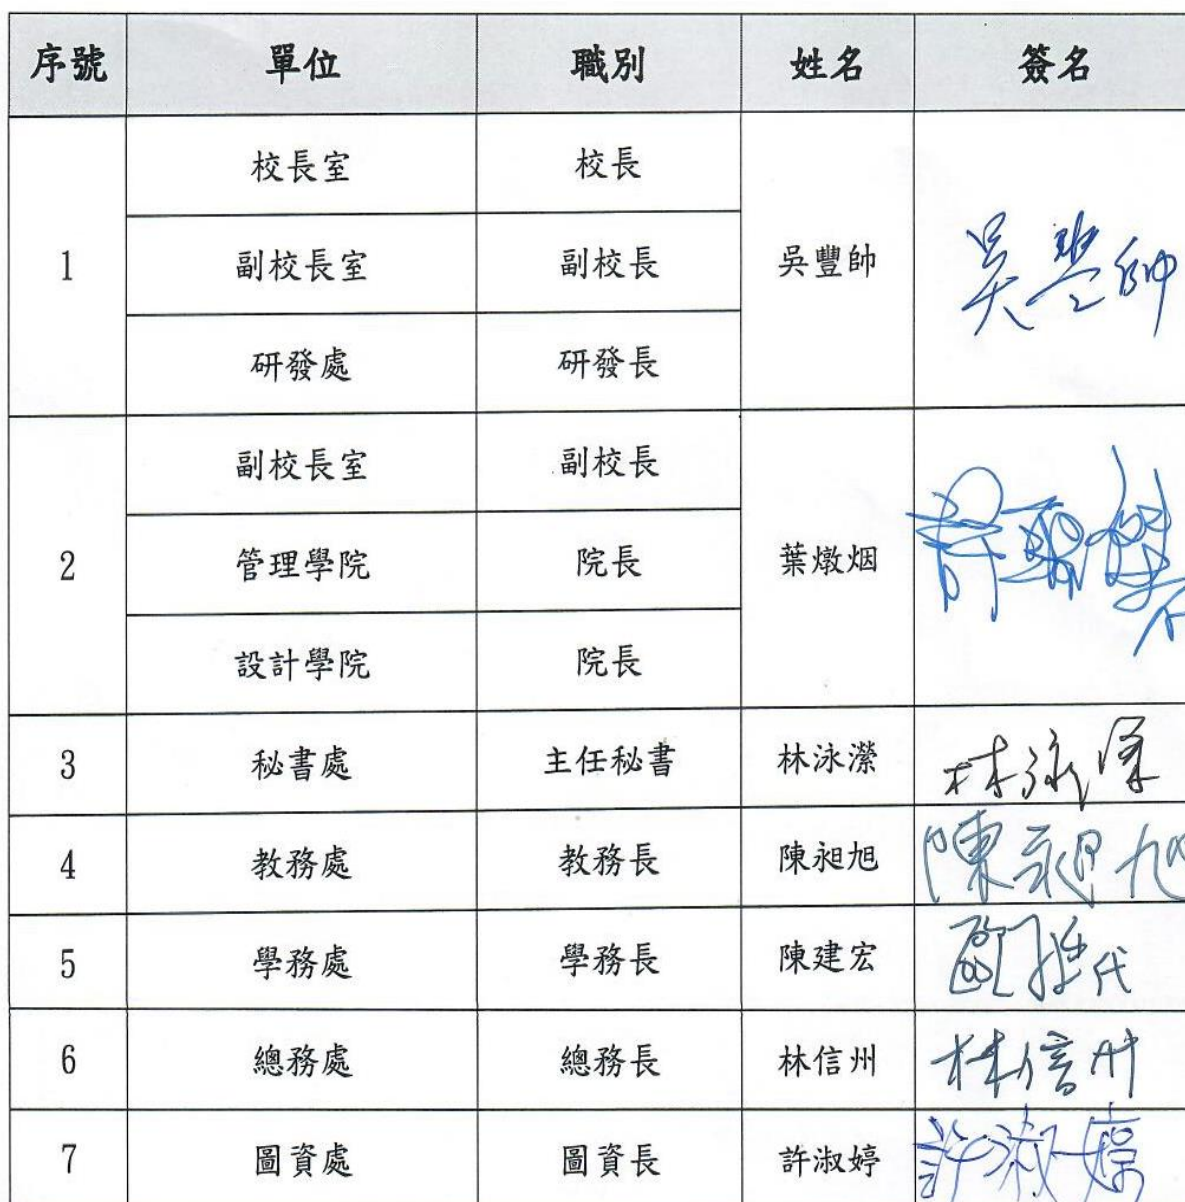 序號 單位 職別 姓名 簽名
校長室 校長
1 副校長室 副校長 吳豐帥 吳豐帥
研發處 研發長
副校長室 副校長
2 管理學院 院長 葉燉烟
設計學院 院長
3 秘書處 主任秘書 林泳瀠 林泳瀠
4 教務處 教務長 陳昶旭 陳昶旭
5 學務處 學務長 陳建宏 代
6 總務處 總務長 林信州 林信州
7 圖資處 圖資長 許淑婷 許淑婷